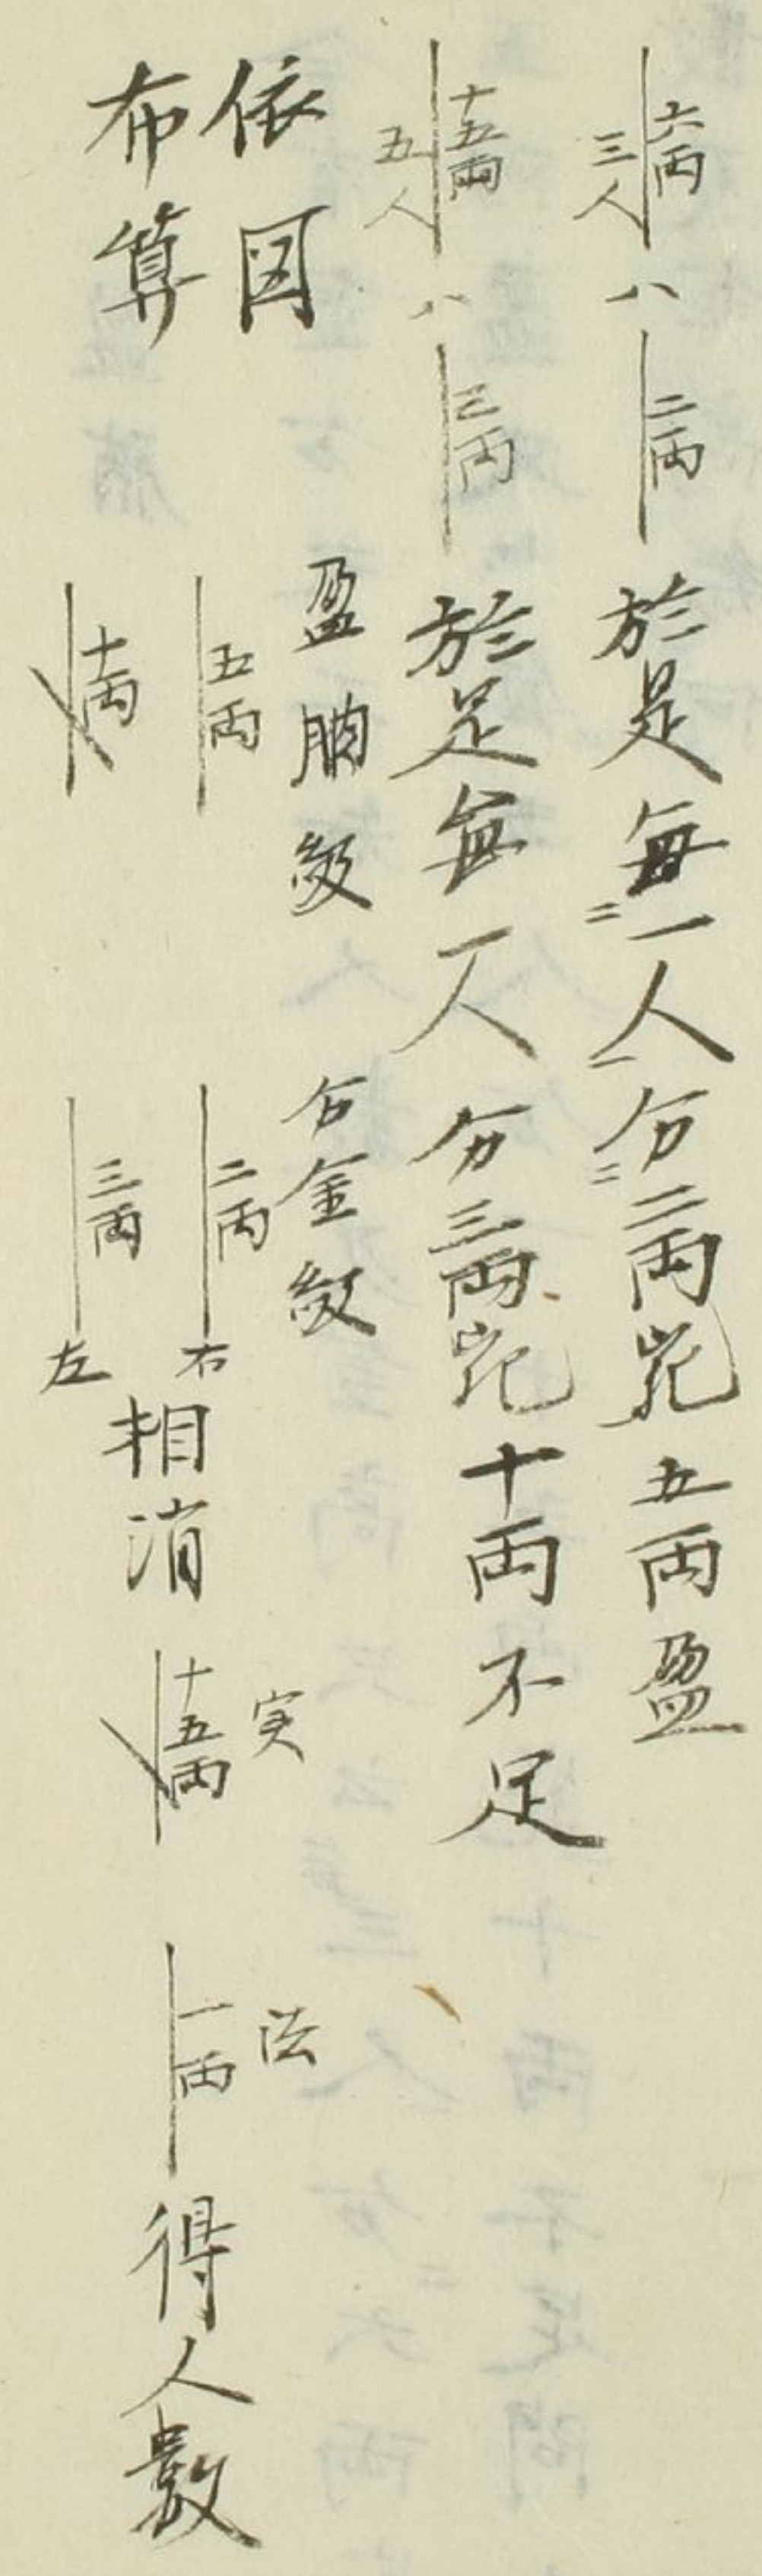 三人 六両 ハ 二両 於是毎一人分二両宛五両盈
五人 十五両 ハ 三両 於是毎一人分三両宛十両不足
依図
布算
盈朒級 五両 十両
分金級 二両 右 三両 左
相消
実 十五両
法 一両
得人数